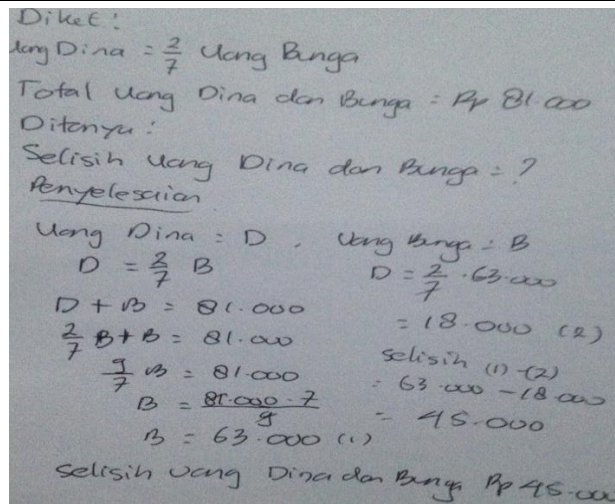 Diket :
Uang Dina = 2/7 Uang Bunga
Total Uang Dina dan Bunga = Rp 81.000
Ditanya :
Selisih Uang Dina dan Bunga = ?
Penyelesaian
Uang Dina = D , Uang Bunga = B
D = 2/7 B
D + B = 81.000
2/7 B + B = 81.000
9/7 B = 81.000
B = 81.000 . 7 / 9
B = 63.000 (1)
D = 2/7 . 63.000
= 18.000 (2)
selisih (1) - (2)
= 63.000 - 18.000
= 45.000
selisih uang Dina dan Bunga Rp 45.000